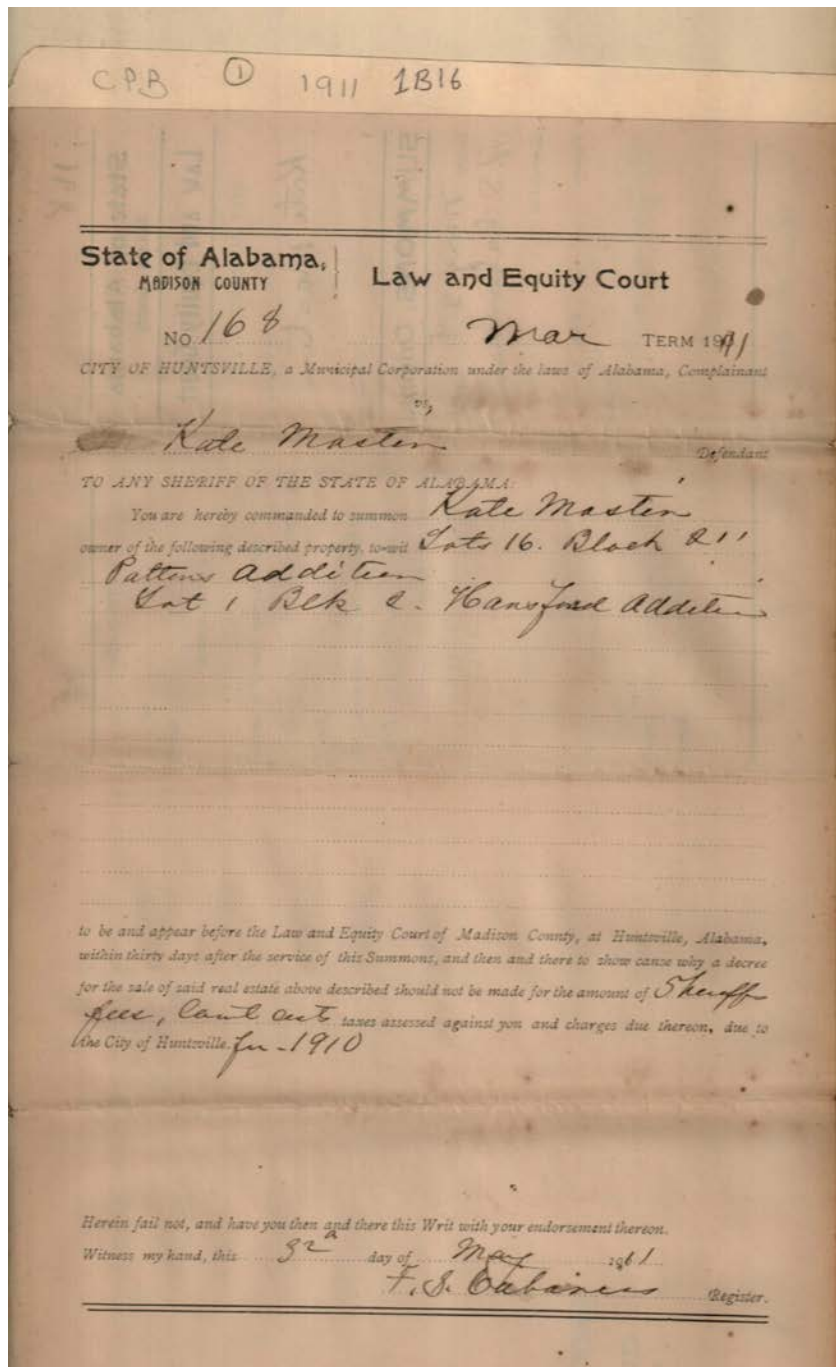 CPB ① 1911 1B16
State of Alabama,
MADISON COUNTY
Law and Equity Court
No 168 Mar TERM 1911
CITY OF HUNTSVILLE, a Municipal Corporation under the laws of Alabama, Complainant
vs,
Kate Mastin Defendant
TO ANY SHERIFF OF THE STATE OF ALABAMA:
You are hereby commanded to summon Kate Mastin
owner of the following described property, to-wit Lots 16. Block
Pattons Addition
Lot 1 Blk 2. Hansford Addition
to be and appear before the Law and Equity Court of Madison County, at Huntsville, Alabama,
within thirty days after the service of this Summons, and then and there to show cause why a decree
for the sale of said real estate above described should not be made for the amount of Sheriff
fees, Court cost taxes assessed against you and charges due thereon, due to
the City of Huntsville. for 1910
Herein fail not, and have you then and there this Writ with your endorsement thereon.
Witness my hand, this day of May 1911
F. S. Cabaniss Register.